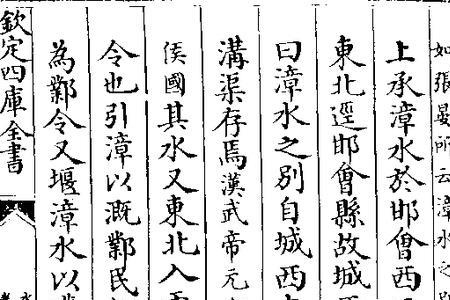 如張晏所云漳水之別
上承漳水於邯會西
東北逕邯會縣故城西
曰漳水之別自城西
溝渠存焉漢武帝元
侯國其水又東北入
令也引漳以溉鄴民
為鄴令又堰漳水以
欽定四庫全書